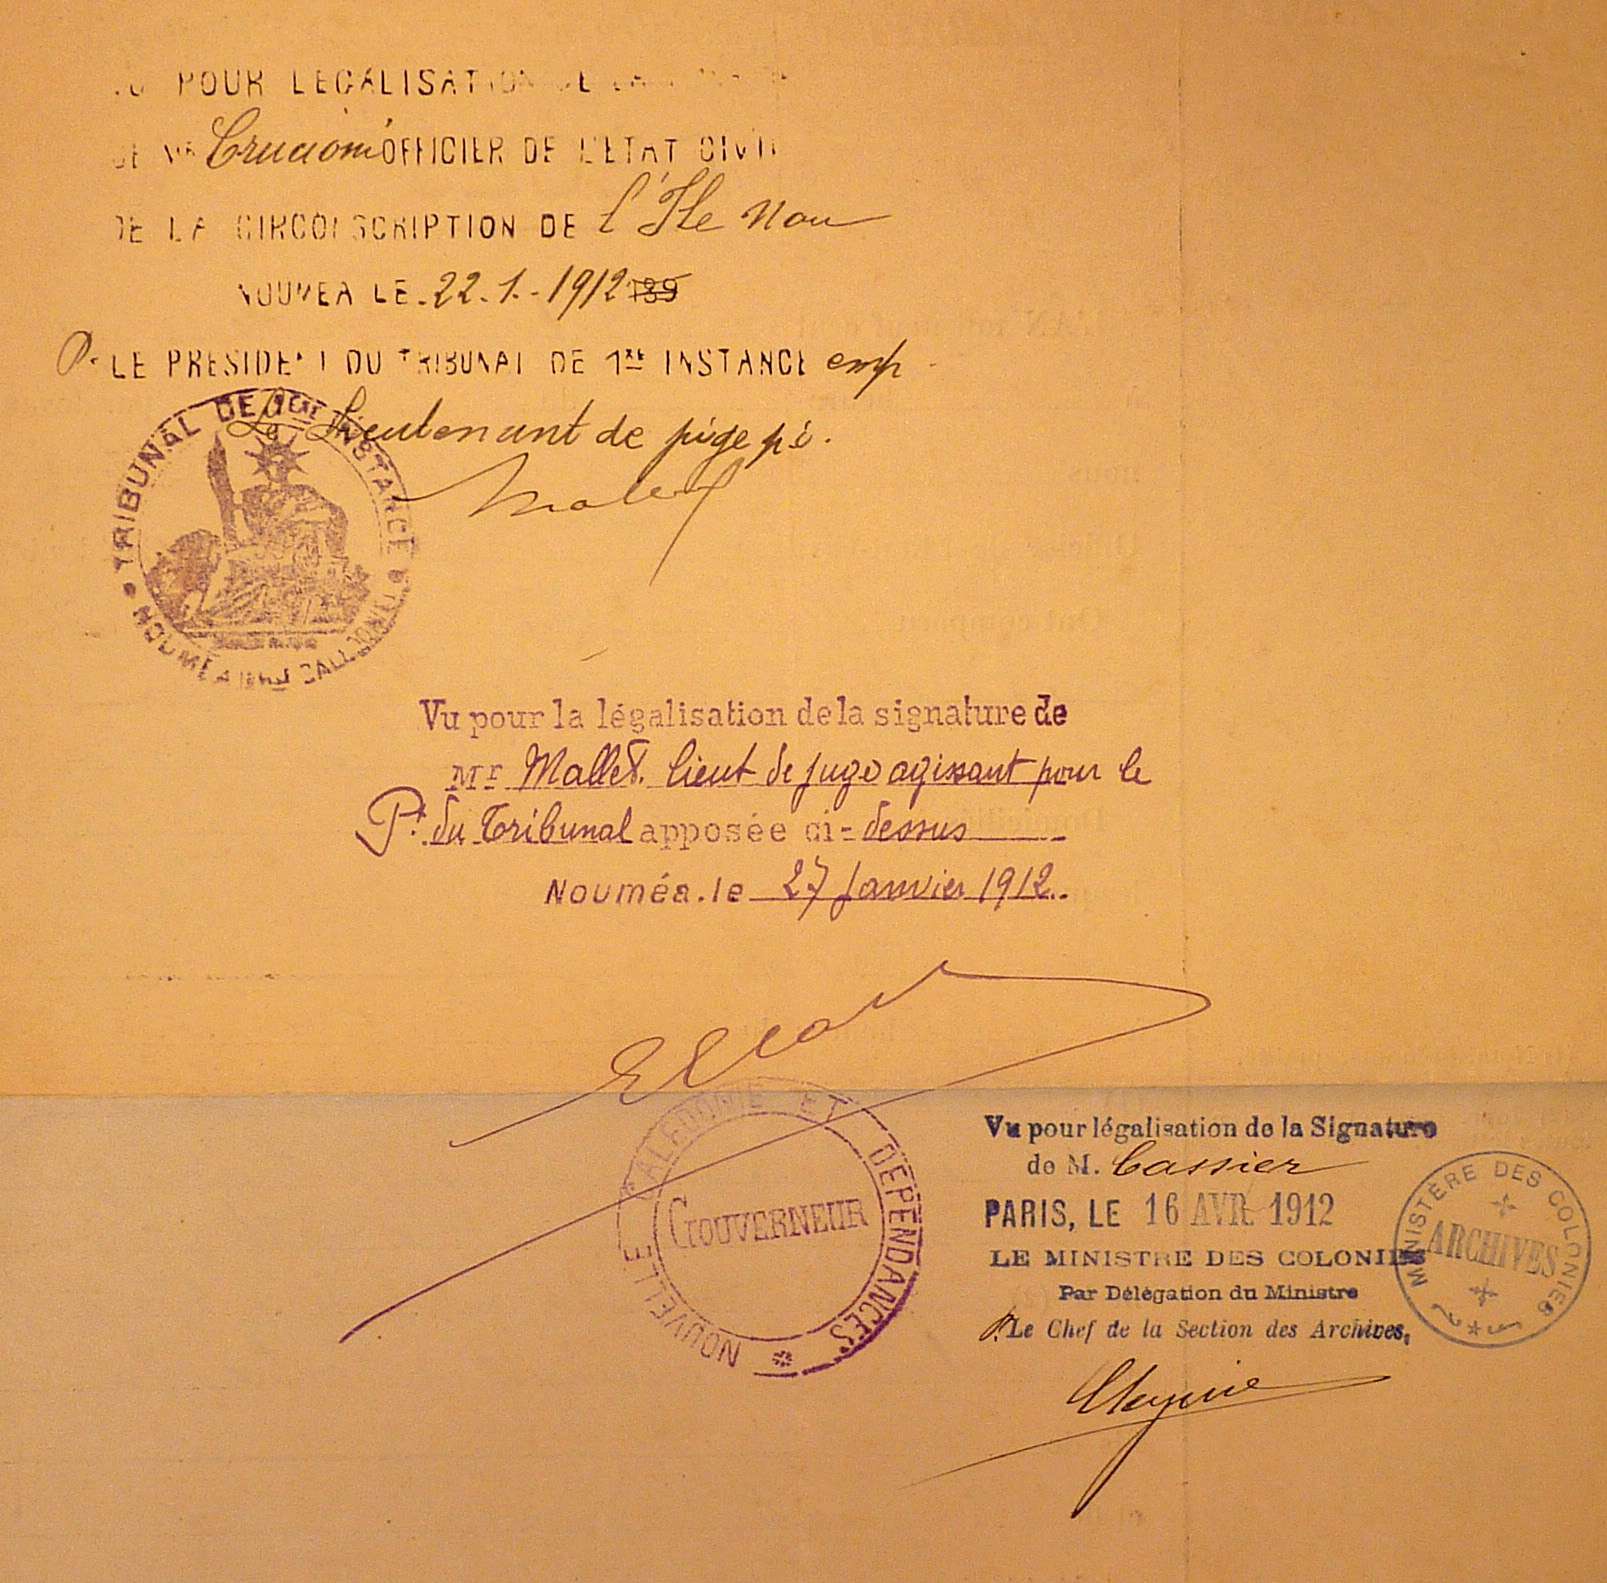 POUR LEGALISATION DE LA
DE Mr OFFICIER DE L'ETAT CIVIL
DE LA CIRCONSCRIPTION DE l'Ile Nou
NOUMEA LE. 22.1.-1912 189
P. LE PRESIDENT DU TRIBUNAL DE 1RE INSTANCE emp
Le Lieutenant de juge p.i.
Mallet
TRIBUNAL DE 1ERE INSTANCE
NOUMÉA
Vu pour la légalisation de la signature de
Mr Mallet. lieut de juge agissant pour le
Pt. du Tribunal apposée ci-dessus
Nouméa. le 27 Janvier 1912.
NOUVELLE CALÉDONIE ET DÉPENDANCES
GOUVERNEUR
Vu pour légalisation de la Signature
de M. Cassier
PARIS, LE 16 AVR. 1912
LE MINISTRE DES COLONIES
Par Délégation du Ministre
P. Le Chef de la Section des Archives,
MINISTÈRE DES COLONIES
ARCHIVES